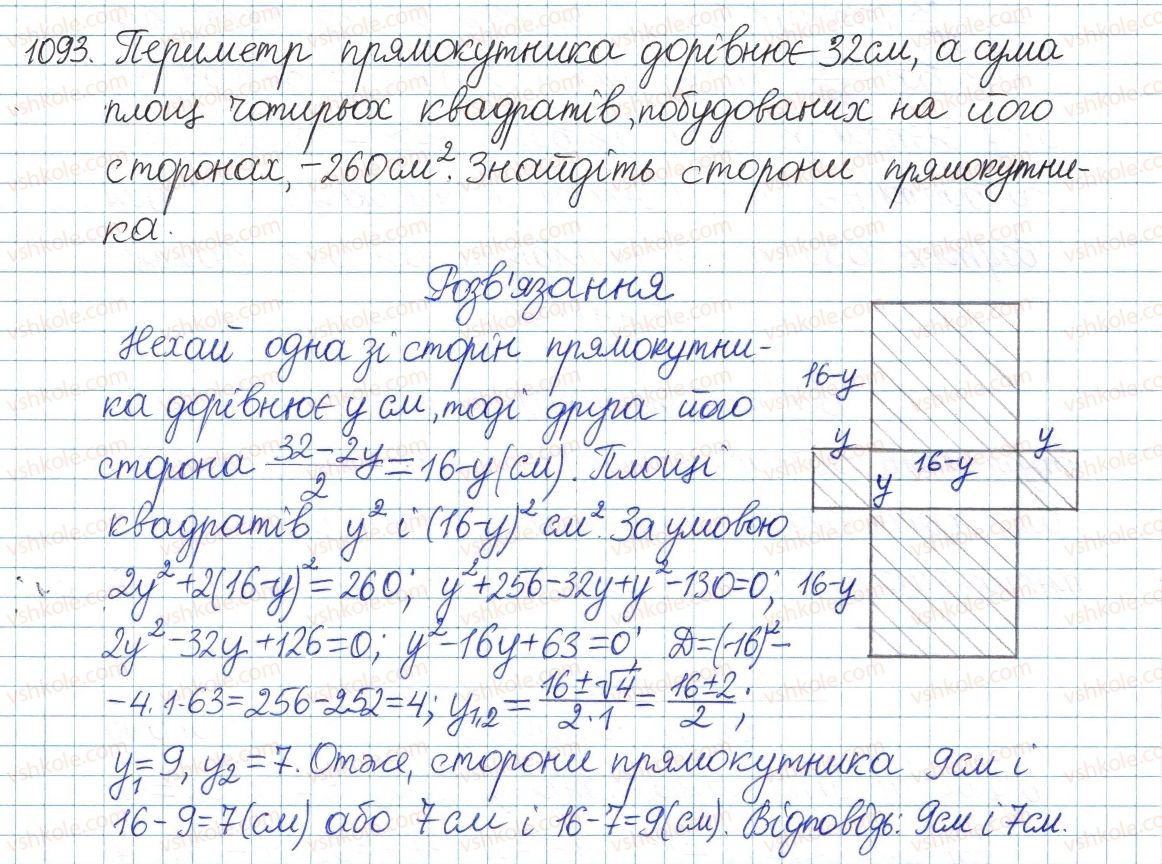 1093. Периметр прямокутника дорівнює 32см, а сума
площ чотирьох квадратів, побудованих на його
сторонах, –260см². Знайдіть сторони прямокутни-
ка.
Розв'язання
Нехай одна зі сторін прямокутни-
ка дорівнює y см, тоді друга його
сторона (32-2y)/2 = 16-y(см). Площі
квадратів y² і (16-y)² см². За умовою
2y²+2(16-y)²=260; y²+256-32y+y²-130=0;
2y²-32y+126=0; y²-16y+63=0; Д=(-16)²-
-4·1·63=256-252=4; y₁,₂=(16±√4)/(2·1)=(16±2)/2;
y₁=9, y₂=7. Отже, сторони прямокутника 9см і
16-9=7(см) або 7см і 16-7=9(см). Відповідь: 9см і 7см.
16-y
y
y
16-y
y
16-y
vshkole.com